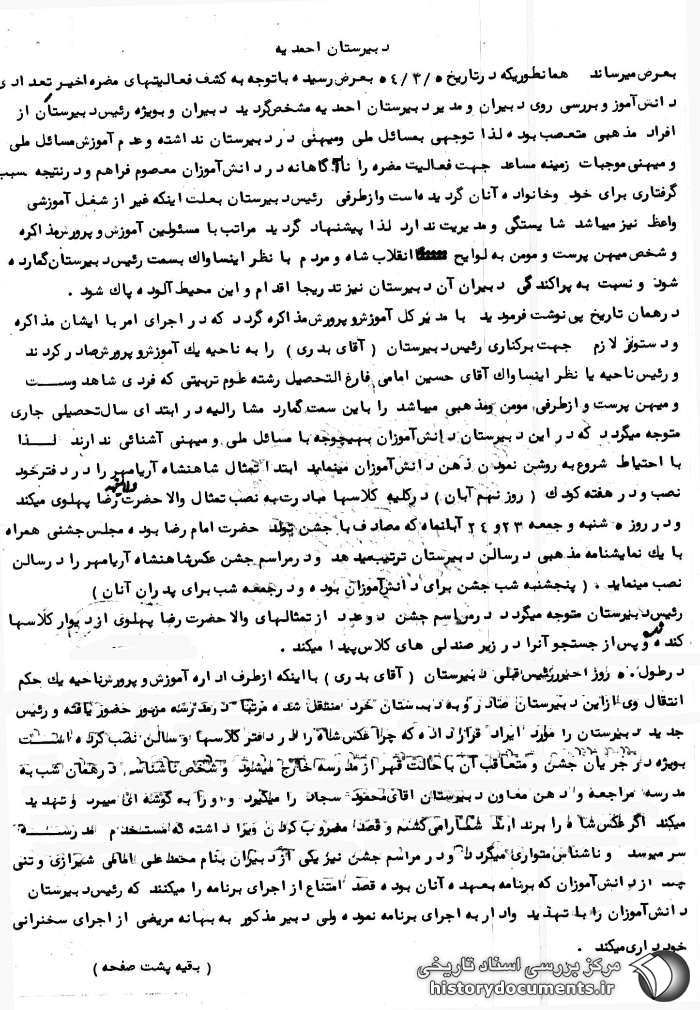 دبیرستان احمدیه
بعرض میرساند همانطوریکه در تاریخ ۵۴/۳/۵ بعرض رسیده با توجه به کشف فعالیتهای مضره اخیر تعدادی
دانش‌آموز و بررسی روی دبیران و مدیر دبیرستان احمدیه مشخص گردید دبیران و بویژه رئیس دبیرستان از
افراد مذهبی متعصب بوده لذا توجهی بمسائل ملی و میهنی در دبیرستان نداشته و عدم آموزش مسائل ملی
و میهنی موجبات زمینه مساعد جهت فعالیت مضره را ناآگاهانه در دانش‌آموزان معصوم فراهم و در نتیجه سبب
گرفتاری برای خود و خانواده آنان گردیده است و از طرفی رئیس دبیرستان بعلت اینکه غیر از شغل آموزشی
واعظ نیز میباشد شایستگی و مدیریت ندارد لذا پیشنهاد گردید مراتب با مسئولین آموزش و پرورش مذاکره
و شخص میهن پرست و مومن به لوایح انقلاب شاه و مردم با نظر اینساواک بسمت رئیس دبیرستان گمارده
شود و نسبت به پراکندگی دبیران آن دبیرستان نیز تدریجا اقدام و این محیط آلوده پاک شود .
در همان تاریخ پی نوشت فرمودید با مدیر کل آموزش و پرورش مذاکره گردد که در اجرای امر با ایشان مذاکره
و دستور لازم جهت برکناری رئیس دبیرستان ( آقای بدری ) را به ناحیه یک آموزش و پرورش صادر کردند
و رئیس ناحیه با نظر اینساواک آقای حسین امامی فارغ التحصیل رشته علوم تربیتی که فردی شاهدوست
و میهن پرست و از طرفی مومن و مذهبی میباشد را باین سمت گمارد مشارالیه در ابتدای سال تحصیلی جاری
متوجه میگردد که در این دبیرستان دانش‌آموزان بهیچوجه با مسائل ملی و میهنی آشنائی ندارند لذا
با احتیاط شروع به روشن نمودن ذهن دانش‌آموزان مینماید ابتدا تمثال شاهنشاه آریامهر را در دفتر خود
نصب و در هفته کودک ( روز نهم آبان ) در کلیه کلاسها مبادرت به نصب تمثال والاحضرت رضا پهلوی میکند
و در روز ۵ شنبه و جمعه ۲۳ و ۲۴ آبانماه که مصادف با جشن تولد حضرت امام رضا بوده مجلس جشنی همراه
با یک نمایشنامه مذهبی در سالن دبیرستان ترتیب میدهد و در مراسم جشن عکس شاهنشاه آریامهر را در سالن
نصب مینماید . ( پنجشنبه شب جشن برای دانش‌آموزان بوده و در جمعه شب برای پدران آنان )
رئیس دبیرستان متوجه میگردد در مراسم جشن دو عدد از تمثالهای والاحضرت رضا پهلوی از دیوار کلاسها
کنده و پس از جستجو آنرا در زیر صندلی های کلاس پیدا میکند .
در طول روز اخیر رئیس قبلی دبیرستان ( آقای بدری ) با اینکه از طرف اداره آموزش و پرورش ناحیه یک حکم
انتقال وی از این دبیرستان صادر و به دبستان خرد منتقل شده مرتبا در مدرسه مزبور حضور یافته و رئیس
جدید دبیرستان را مورد ایراد قرار داده که چرا عکس شاه را در دفتر کلاسها و سالن نصب کرده است
بویژه در جریان جشن و متعاقب آن با حالت قهر از مدرسه خارج میشود و شخص ناشناسی در همان شب به
مدرسه مراجعه و دهن معاون دبیرستان آقای محمود سجاد را میگیرد و او را به گوشه ای میبرد و تهدید
میکند اگر عکس شاه را برندارند شما را می کشم و قصد مضروب کردن ویرا داشته که مستخدم مدرسه
سر میرسد و ناشناس متواری میگردد و در مراسم جشن نیز یکی از دبیران بنام محمد علی امامی شیرازی و تنی
چند از دانش‌آموزان که برنامه بعهده آنان بوده قصد امتناع از اجرای برنامه را میکنند که رئیس دبیرستان
دانش‌آموزان را با تهدید وادار به اجرای برنامه نموده ولی دبیر مذکور به بهانه مریضی از اجرای سخنرانی
خودداری میکند .
( بقیه پشت صفحه )
مرکز بررسی اسناد تاریخی
historydocuments.ir